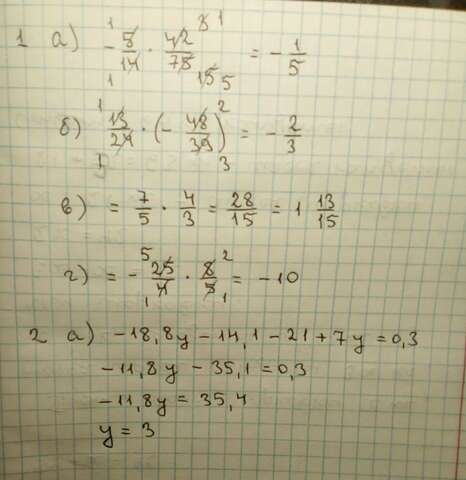 1 а) - 5/14 · 42/75 = - 1/5
б) 13/24 · (- 48/39) = - 2/3
в) = 7/5 · 4/3 = 28/15 = 1 13/15
г) = - 25/4 · 8/5 = -10
2 а) -18,8y - 14,1 - 21 + 7y = 0,3
-11,8y - 35,1 = 0,3
-11,8y = 35,4
y = 3